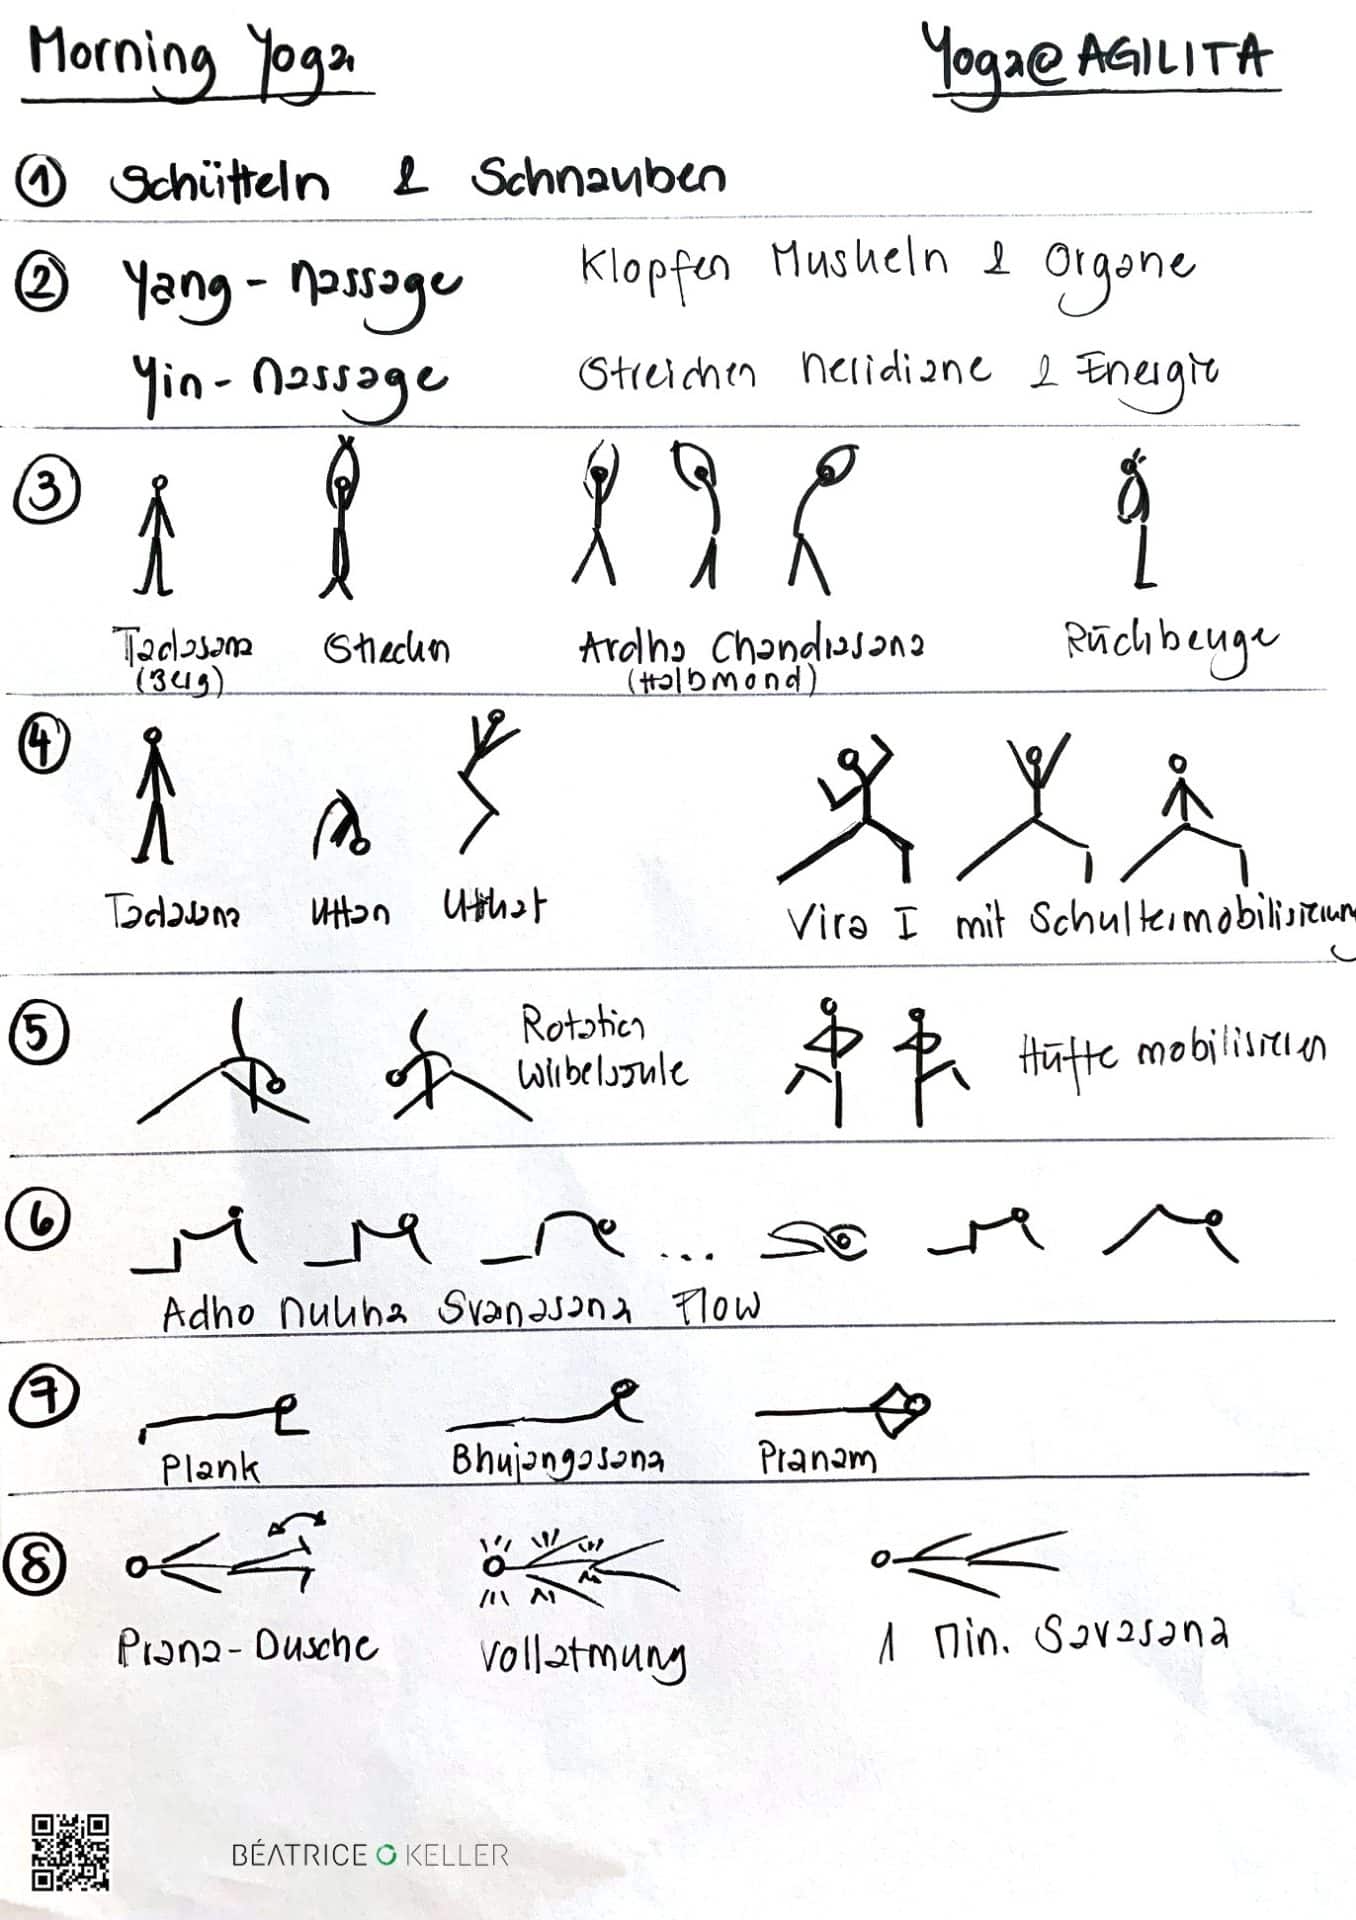 Morning Yoga
Yoga@AGILITA
1 Schütteln & Schnauben
2 Yang-Massage Klopfen Muskeln & Organe
Yin-Massage Streichen Meridiane & Energie
3
Tadasana Strecken Ardha Chandrasana Rückbeuge
(Berg) (Halbmond)
4
Tadasana Uttan Utkat Vira I mit Schultermobilisierung
5 Rotation
Wirbelsäule Hüfte mobilisieren
6
...
Adho Mukha Svanasana Flow
7
Plank Bhujangasana Pranam
8
Prana-Dusche Vollatmung 1 Min. Savasana
BÉATRICE KELLER